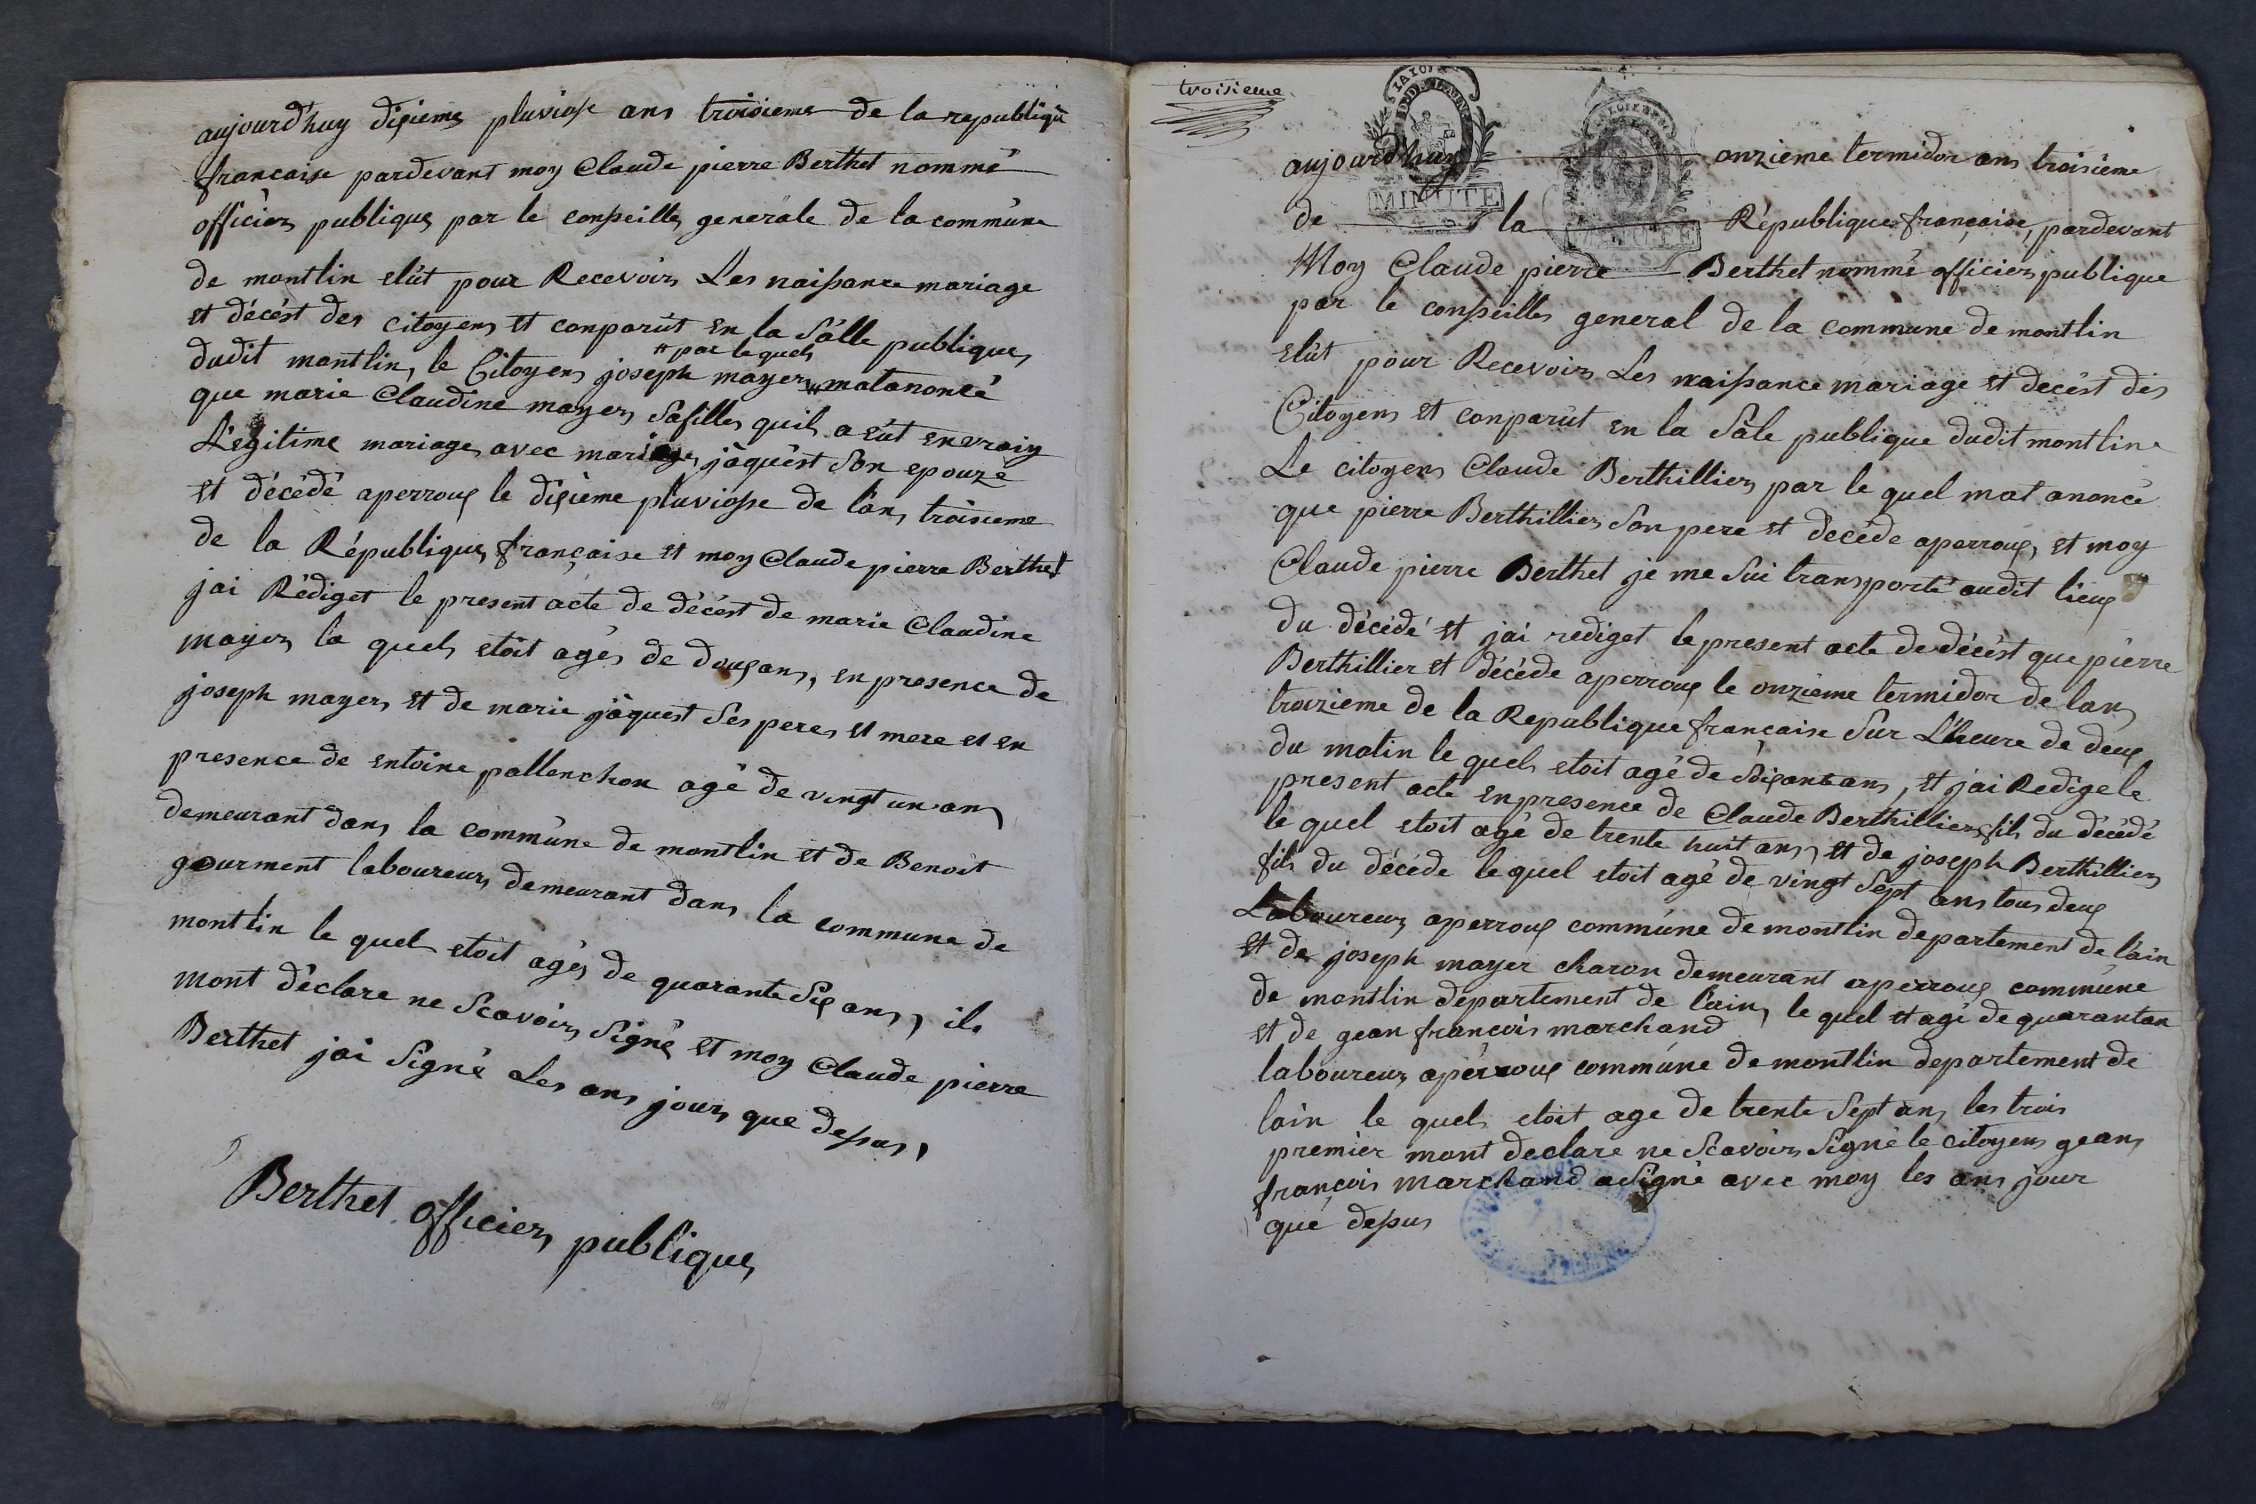 aujourd'huy dixieme pluviose ans troisieme de la republiqu
francaise pardevant moy Claude pierre Berthet nommé
officier publique par le conseille generale de la commúne
de montlin elút pour Recevoir Les naissance mariage
et décést des citoyens et conparút en la Sálle publique
dudit montlin, le Citoyens joseph mayer # matanoncé
# par le quel
que marie Claudine mayer Safille quil a eút en vraiy
Légitime mariage avec mariage jáquést Son epouze
et décédé aperroux le dixieme pluviosse de l'ans troisieme
de la République française et moy Claude pierre Berthet
jai Rédiget le present acte de décést de marie Claudine
mayer la quel etoit agés de douxans, en presence de
joseph mayer et de marie jáquest Ses peres et mere et en
presence de entoine pallenchon agé de vingt un ans
demeurant dans la commúne de montlin et de Benoit
gourment laboureur demeurant dans la commune de
montlin le quel etoit agés de quarante Six ans, ils
mont déclare ne Scavoir Signé et moy Claude pierre
Berthet jai Signé Les ans jour que depus,
Berthet officier publique
troisieme
LA LOI
MINUTE
aujourdhuy onzieme termidor ans troisieme
de la République française, pardevant
Moy Claude pierre Berthet nommé officier publique
par le conseille general de la commune de montlin
elút pour Recevoir Les naissance mariage et decést des
Citoyens et conparút en la Sále publique dudit montlin
Le citoyens Claude Berthillier par le quel mat anoncé
que pierre Berthillier Son pere et decéde aperroux, et moy
Claude pierre Berthet je me Sui transporté audit lieux
du décédé et jai rediget le present acte de décést que pierre
Berthillier et décéde aperroux le onzieme termidor de lans
troizieme de la Republique francaise Sur L'heure de deux
du matin le quel etoit agé de Soixantans, et jai Redige le
present acte en presence de Claude Berthillier fils du décédé
le quel etoit agé de trente huit ans, et de joseph Berthillier
fils du décéde le quel etoit agé de vingt Sept ans tous deux
Laboureur aperroux commúne de montlin departement de l'ain
et de joseph mayer charon demeurant aperroux commúne
de montlin departement de l'ain, le quel et agé de quarantan
et de gean françois marchand
laboureur apérroux commúne de montlin departement de
lain le quel etoit age de trente Sept ans les trois
premier mont declare ne Scavoir Signé le citoyens gean
françois marchand a Signé avec moy les ans jour
que depus